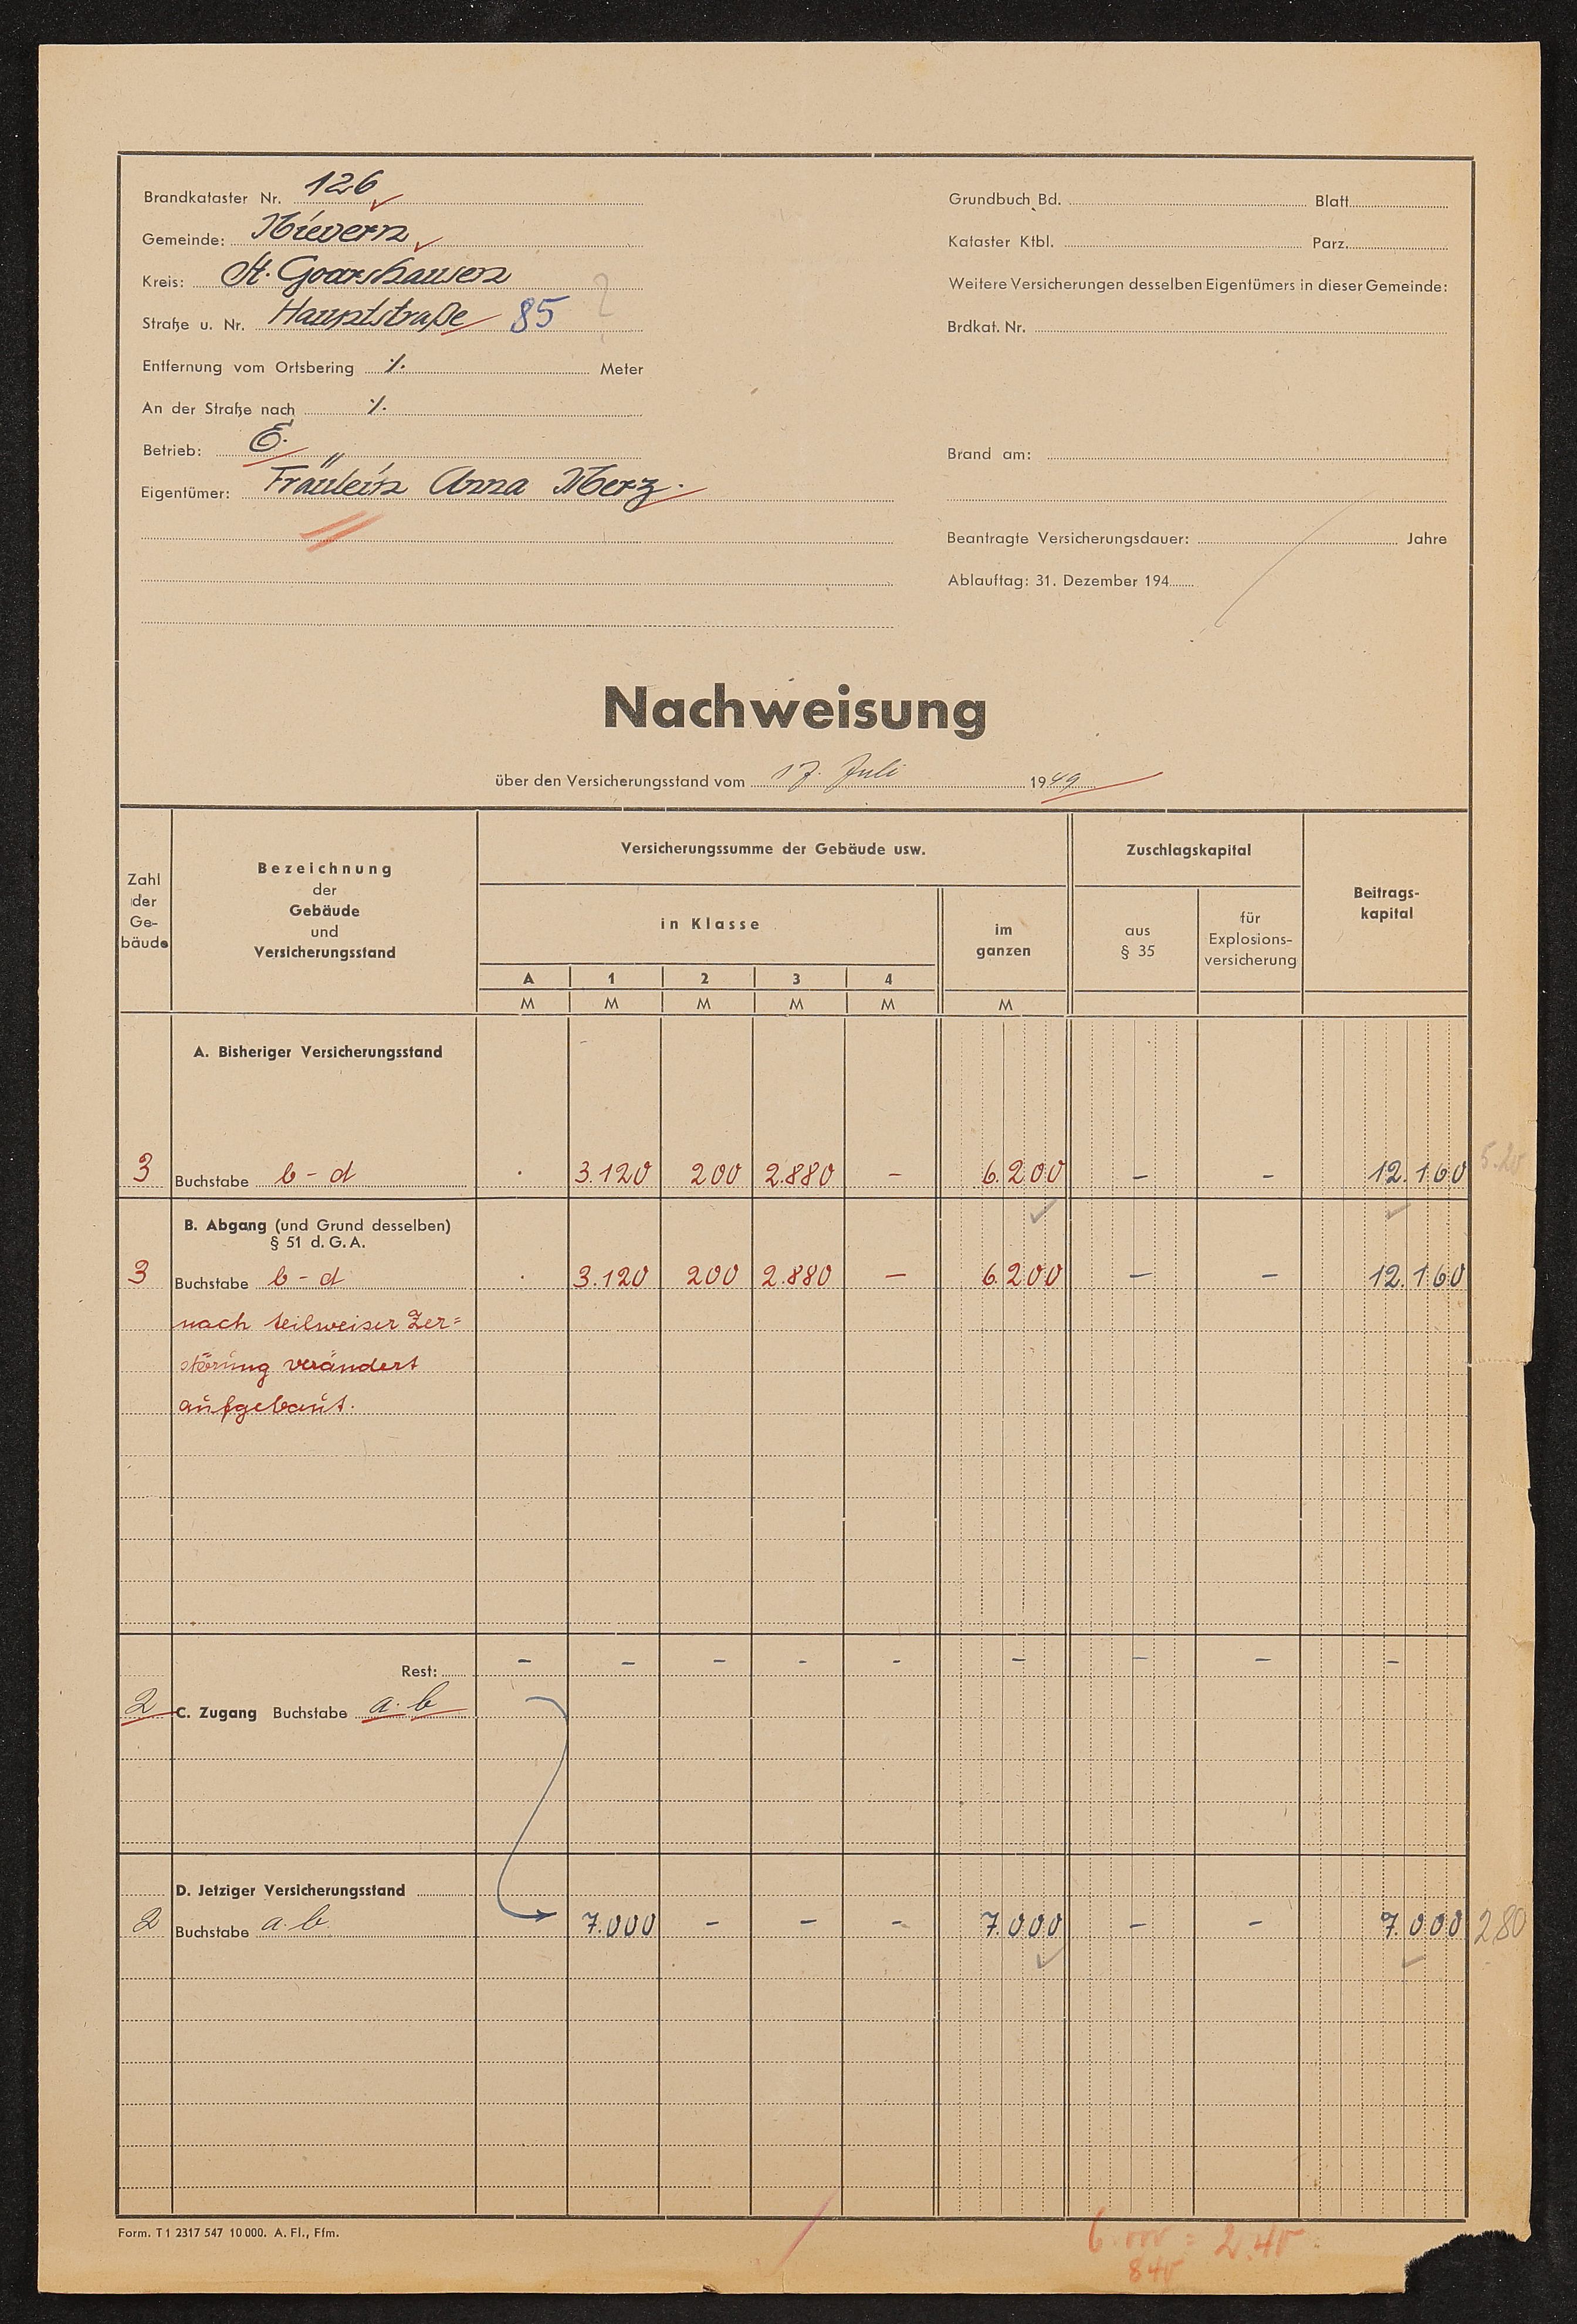 Brandkataster Nr. 126
Gemeinde: Nievern
Kreis: St. Goarshausen
Straße u. Nr. Hauptstraße 85 ?
Entfernung vom Ortsbering ./. Meter
An der Straße nach ./.
Betrieb: E.
Eigentümer: Fräulein Anna Merz.
Grundbuch Bd. Blatt
Kataster Ktbl. Parz.
Weitere Versicherungen desselben Eigentümers in dieser Gemeinde:
Brdkat. Nr.
Brand am:
Beantragte Versicherungsdauer: Jahre
Ablauftag: 31. Dezember 194
Nachweisung
über den Versicherungsstand vom 17. Juli 1949
Zahl der Ge-bäude
Bezeichnung
der
Gebäude
und
Versicherungsstand
Versicherungssumme der Gebäude usw.
in Klasse
A 1 2 3 4
M M M M M
im
ganzen
M
Zuschlagskapital
aus
§ 35
für
Explosions-
versicherung
Beitrags-
kapital
A. Bisheriger Versicherungsstand
3 Buchstabe b - d . 3.120 200 2.880 – 6.200 – – 12.160 5.20
B. Abgang (und Grund desselben)
§ 51 d. G. A.
3 Buchstabe b - d . 3.120 200 2.880 – 6.200 – – 12.160
nach teilweiser Zer=
störung verändert
aufgebaut.
Rest: – – – – – – – – –
2 C. Zugang Buchstabe a. b
D. Jetziger Versicherungsstand
2 Buchstabe a. b. 7.000 – – – 7.000 – – 7.000 280
Form. T 1 2317 547 10 000. A. Fl., Ffm.
6.000 = 2.40
840